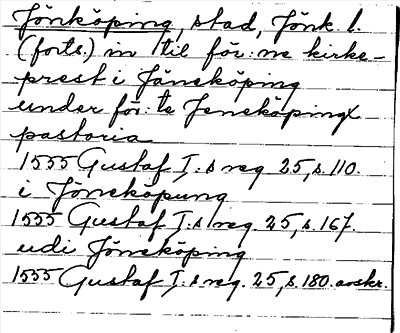 Jönköping, stad, Jönk. l.
(forts.) in til för:ne kirke-
prest i Jäneköping
under för:te Jeneköping
pastoria
1555 Gustaf I:s reg. 25, s. 110.
i Jöneköpung
1555 Gustaf I:s reg. 25, s. 167.
udi Jöneköping
1555 Gustaf I:s reg. 25, s. 180. avskr.